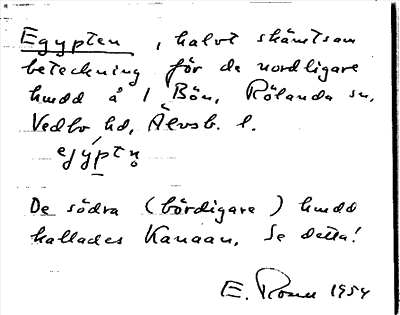 Egypten, halvt skämtsam
beteckning för de nordligare
hmdd å 1 Bön, Rölanda sn,
Vedbo hd, Älvsb. l.
ejýptn̥
De södra (bördigare) hmdd
kallades Kanaan. Se detta!
E. 1954